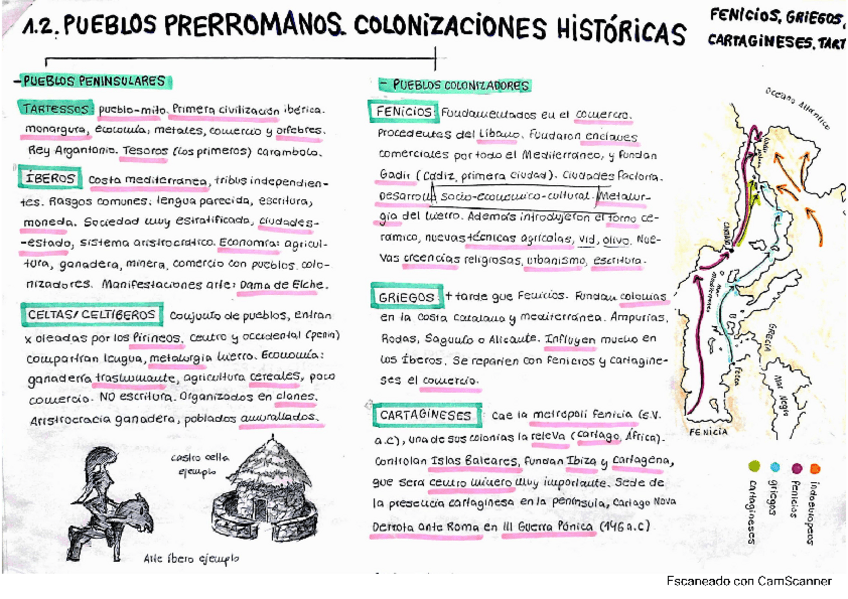 1.2. PUEBLOS PRERROMANOS. COLONIZACIONES HISTÓRICAS
FENICIOS, GRIEGOS,
CARTAGINESES, TART
- PUEBLOS PENINSULARES
TARTESSOS: pueblo-mito. Primera civilización ibérica.
monarquía, economía; metales, comercio y orfebres.
Rey Argantonio. Tesoros (los primeros) carambolo.
ÍBEROS Costa mediterranea, tribus independien-
tes. Rasgos comunes: lengua parecida, escritura,
moneda. Sociedad muy estratificada, ciudades-
-estado, sistema aristocrático. Economía: agricul-
tura, ganadera, minera, comercio con pueblos colo-
nizadores. Manifestaciones arte: Dama de Elche.
CELTAS/CELTÍBEROS Conjunto de pueblos, entran
x oleadas por los Pirineos, centro y occidental (penin)
compartían lengua, metalurgia hierro. Economía:
ganadería trashumante, agricultura cereales, poco
comercio. NO escritura. Organizados en clanes.
Aristocracia ganadera, poblados amurallados.
castro celta
ejemplo
Arte íbero ejemplo
- PUEBLOS COLONIZADORES
FENICIOS: Fundamentados en el comercio.
Procedentes del Líbano. Fundaron enclaves
comerciales por todo el Mediterráneo, y fundan
Gadir (Cadiz, primera ciudad). Ciudades factoria.
desarrollo socio-economico-cultural. Metalur-
gia del hierro. Además introdujeron el torno ce-
ramico, nuevas técnicas agrícolas, vid, olivo. Nue-
vas creencias religiosas, urbanismo, escritura.
GRIEGOS + tarde que Fenicios. Fundan colonias
en la costa catalana y mediterránea. Ampurias,
Rodas, Sagunto o Alicante. Influyen mucho en
los Íberos. Se reparten con Fenicios y Cartagine-
ses el comercio.
CARTAGINESES Cae la metropoli Fenicia (s.V.
a.c), una de sus colonias la releva (cartago, África).
Controlan Islas Baleares, fundan Ibiza y Cartagena,
que sera centro minero muy importante. Sede de
la presencia cartaginesa en la península, Cartago Nova
Derrota ante Roma en III Guerra Púnica (146 a.c)
Oceano Atlántico
GRECIA
Mar Negro
Focea
FENICIA
indoeuropeos
Fenicios
griegos
cartagineses
Escaneado con CamScanner